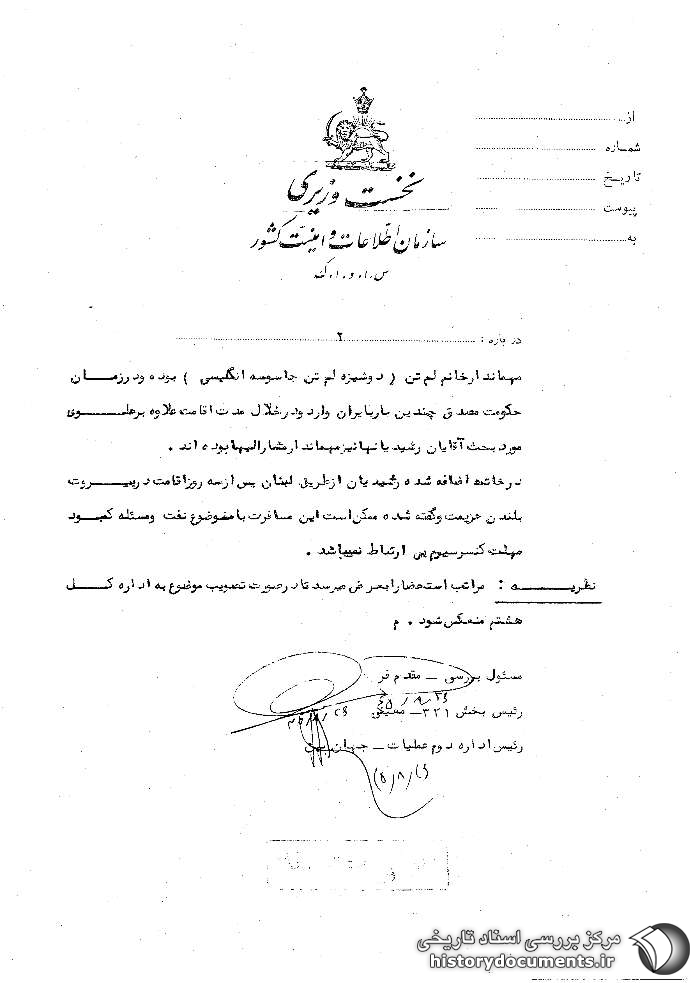 از
شماره
تاریخ
پیوست
به
نخست وزیری
سازمان اطلاعات و امنیت کشور
س.ا.و.ا.ک
درباره : ۲
مهماندار خانم لم تن ( دوشیزه لم تن جاسوسه انگلیسی ) بوده و در زمان
حکومت مصدق چندین بار بایران وارد و در خلال مدت اقامت علاوه بر علوی
مورد بحث آقایان رشیدیانها نیز مهماندار مشارالیها بوده اند .
در خاتمه اضافه شده رشیدیان از طریق لبنان پس از سه روز اقامت در بیروت
بلندن عزیمت و گفته شده ممکن است این مسافرت با موضوع نفت و مسئله کمبود
مهلت کنسرسیوم بی ارتباط نمیباشد .
نظریه : مراتب استحضارا بعرض میرسد تا در صورت تصویب موضوع به اداره کل
هشتم منعکس شود . م
مسئول بررسی ـ مقدم فر
رئیس بخش ۳۲۱ ـ
رئیس اداره دوم عملیات ـ جهان بین
مرکز بررسی اسناد تاریخی
historydocuments.ir